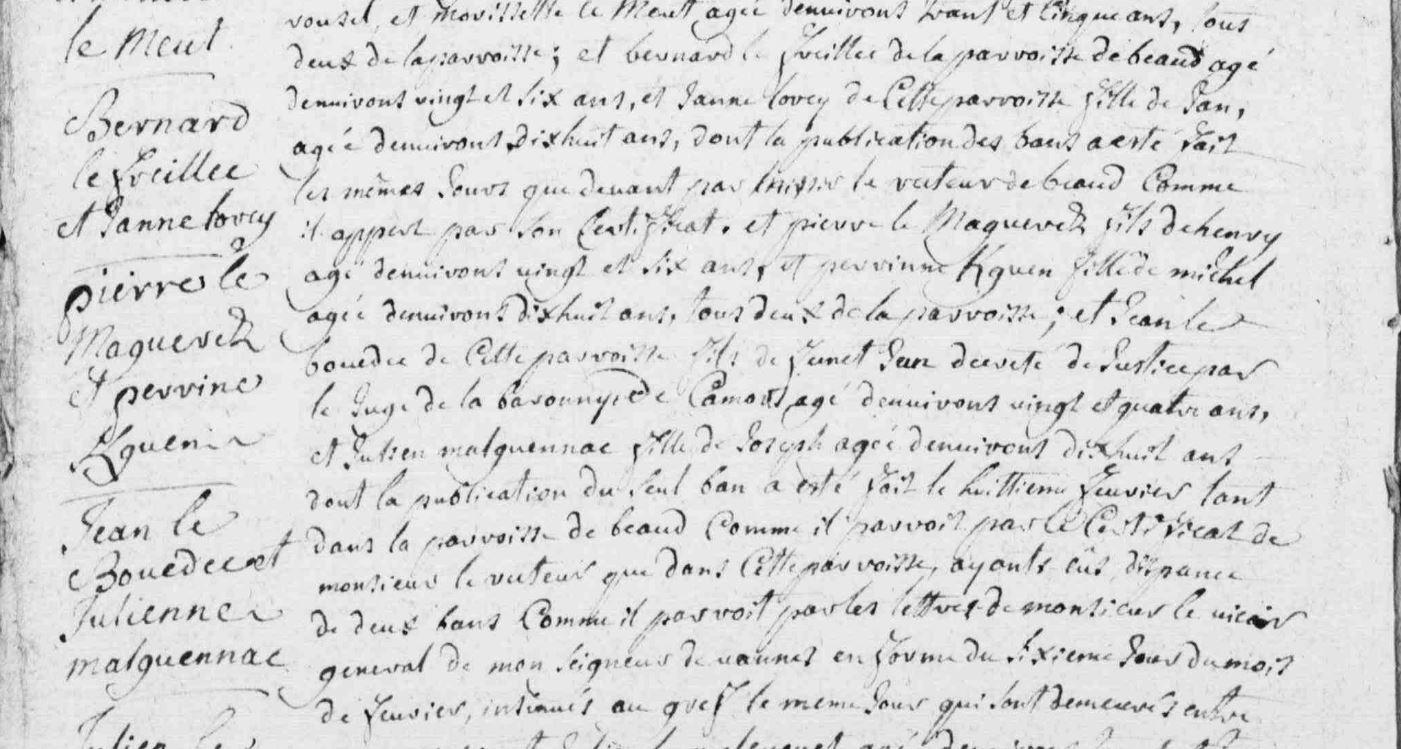 le Meut
Bernard
le freillec
et Janne lorcy
pierre le
Maguereh
et pervine
Kguen
Jean le
Bouedec et
Julienne
malguennac
Julien le
rousel, et morissette le Meutt agée denuirons trant et Cinque ans, tous
deux de la parroisse; et bernard le freillec de la parroisse de beaud agé
denuirons vingt et six ans, et Janne lorcy de Cette parroisse fille de Jan,
agéé denuirons dixhuit ans, dont la publication des bans a esté fait
les mêmes Jours que deuant par le recteur de beaud Comme
il appert par son Certificat. et pierre le Maguereh fils de henry
agé denuirons vingt et six ans, et perrinne Kguen fille de michel
agéé denuirons dixhuit ans, tous deux de la parroisse; et Jean le
bouedec de Cette parroisse fils de feunet Jan decreté de Justice par
le Juge de la baronnye de Camors agé denuirons vingt et quatre ans,
et Julien malguennac fille de Joseph agéé denuirons dixhuit ans
dont la publication du seul ban a esté fait le huittieme feurier tant
dans la parroisse de beaud Comme il parroit par le Certificat de
monsieur le recteur que dans Cette parroisse, ayants eüs dispance
de deux bans Comme il parroit par les lettres de monsieur le vicair
general de mon seigneur de uannes en forme du sixieme Jour du mois
de feurier, insinués au gref le meme Jour qui sont demeurés entre